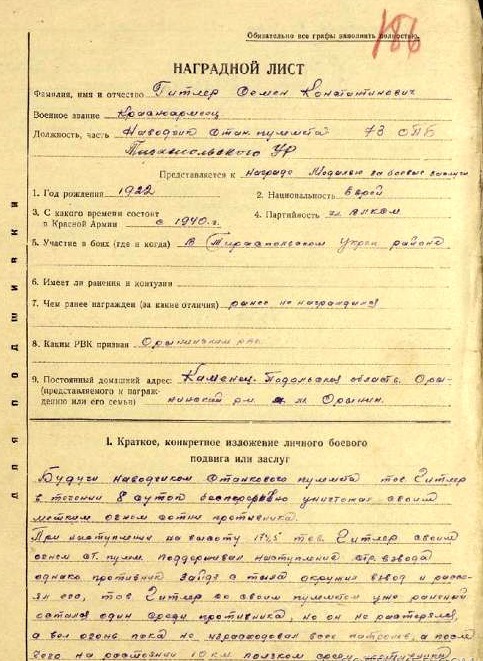 Обязательно все графы заполнить полностью.
186
НАГРАДНОЙ ЛИСТ
Фамилия, имя и отчество Гитлер Семен Константинович
Военное звание Красноармеец
Должность, часть Наводчик стан. пулемета 73 ОПБ
Тираспольского УР
Представляется к награде Медалью за боевые заслуги
1. Год рождения 1922
2. Национальность Еврей
3. С какого времени состоит
в Красной Армии с 1940 г.
4. Партийность чл ВЛКСМ
5. Участие в боях (где и когда) В Тираспольском Укреп районе
6. Имеет ли ранения и контузии
7. Чем ранее награжден (за какие отличия) ранее не награждался
8. Каким РВК призван Орынинским рвк.
9. Постоянный домашний адрес: Каменец-Подольская область. Оры-
(представляемого к награж-
дению или его семьи)
нинский р-н м. Орынин.
ДЛЯ ПОДШИВКИ
I. Краткое, конкретное изложение личного боевого
подвига или заслуг
Будучи наводчиком станкового пулемета тов Гитлер
в течении 8 суток беспрерывно уничтожал своим
метким огнем сотни противника.
При наступлении на высоту 174,5 тов. Гитлер своим
огнем ст. пулем. поддерживал наступление стр. взвода
однако противник зайдя с тыла окружил взвод и рассе-
ял его, тов Гитлер со своим пулеметом уже раненый
остался один среди противника, но он не растерялся,
а вел огонь пока не израсходовал всех патронов, а после
чего на расстоянии 10 км ползком среди противника